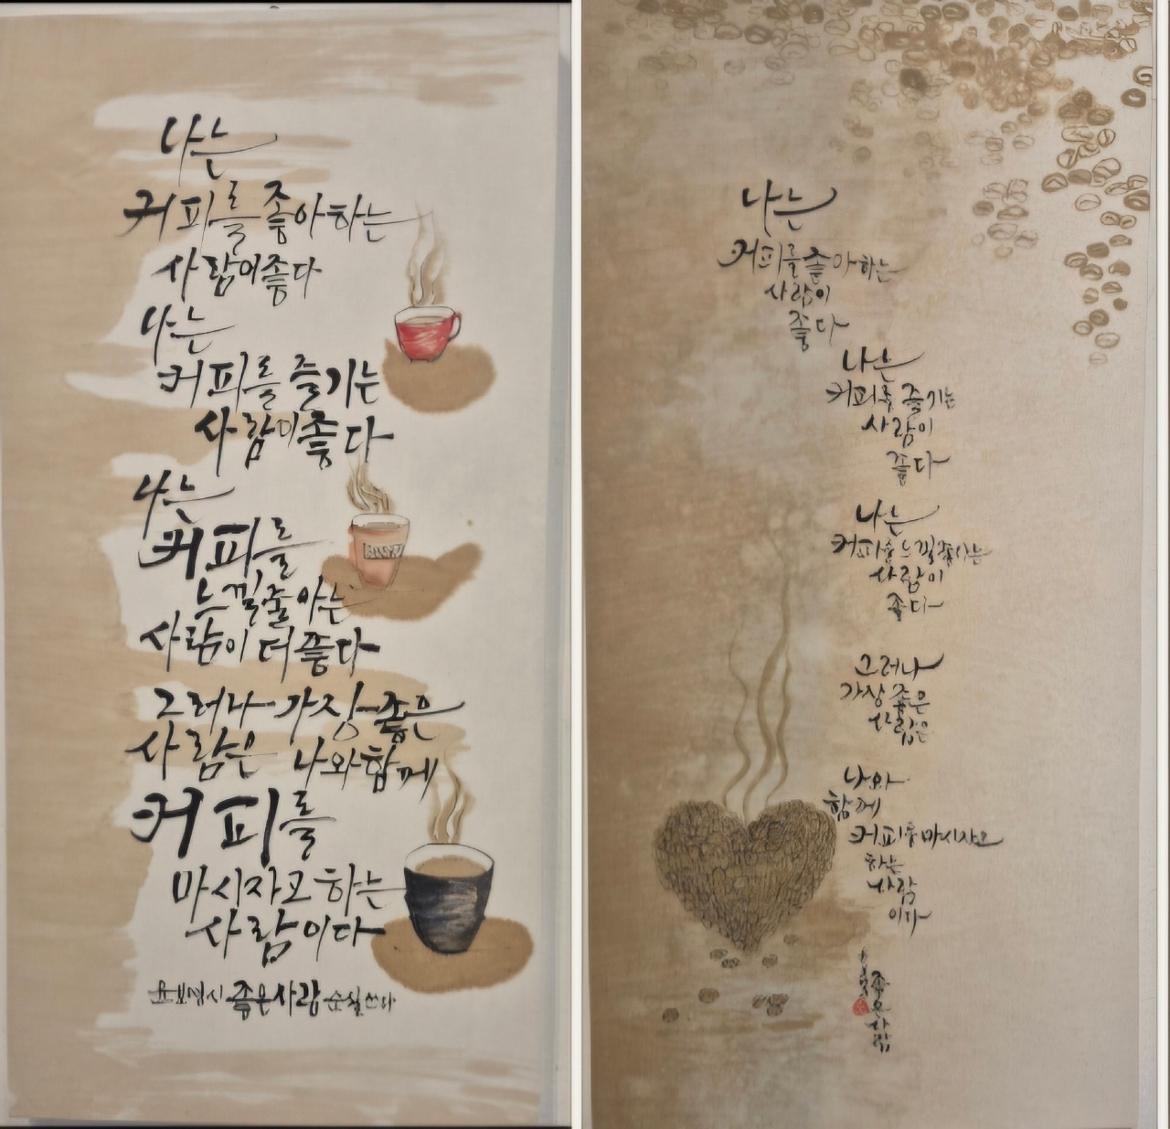 나는
커피를 좋아하는
사람이 좋다
나는
커피를 즐기는
사람이 좋다
나는
커피를
느낄줄 아는
사람이 더 좋다
그러나 가장 좋은
사람은 나와 함께
커피를
마시자고 하는
사람이다
윤보영시 좋은사람 순실쓰다
나는
커피를 좋아하는
사람이
좋다
나는
커피를 즐기는
사람이
좋다
나는
커피를 느낄줄 아는
사람이
좋다
그러나
가장 좋은
사람은
나와
함께
커피를 마시자고
하는
사람
이다
좋은사람